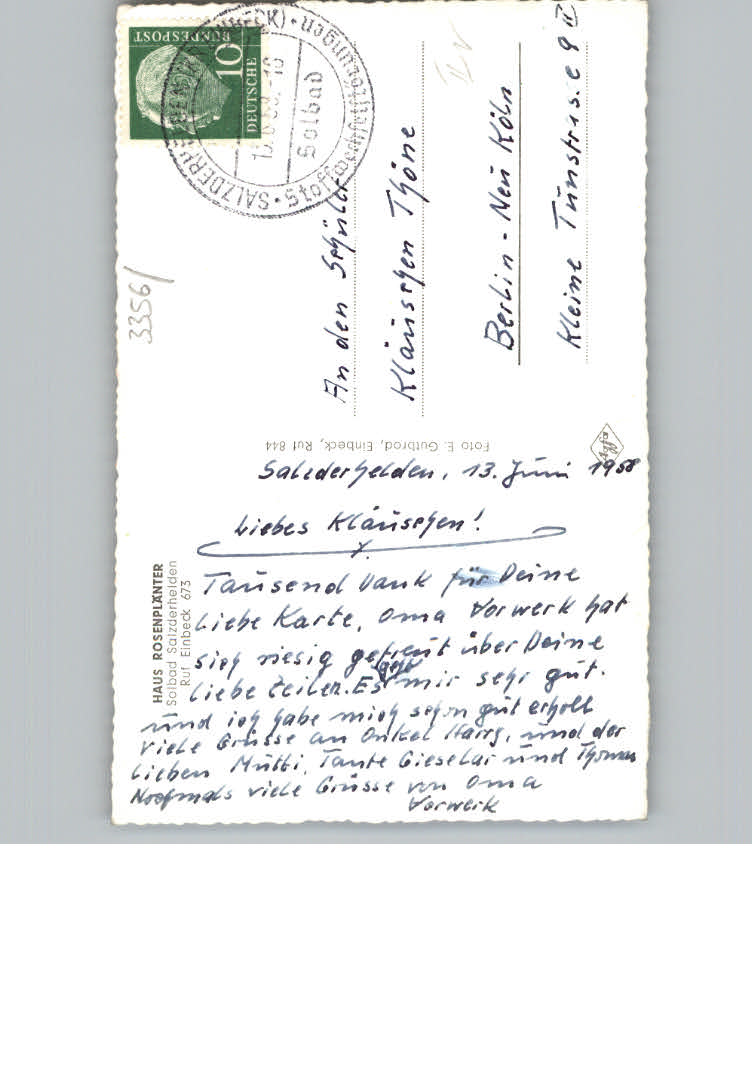 DEUTSCHE
BUNDESPOST
10
SALZDERHELDEN
Solbad
Stoffwechselstörungen
II V
An den Schüler
Kläuschen Thöne
Berlin - Neu Köln
Kleine 9 II
3356/
Foto E. Gutbrod, Einbeck, Ruf 844
Agfa
HAUS ROSENPLÄNTER
Solbad Salzderhelden
Ruf Einbeck 673
Salzderhelden, 13. Juni 1958
Liebes Kläuschen!
Tausend Dank für Deine
liebe Karte, Oma Vorwerk hat
sich riesig gefreut über Deine
liebe Zeilen. Es geht mir sehr gut.
und ich habe mich schon gut erholt
viele Grüsse an Onkel Harry, und der
lieben Mutti, Tante Gieselar und Thomas
Nochmals viele Grüsse von Oma
Vorwerk